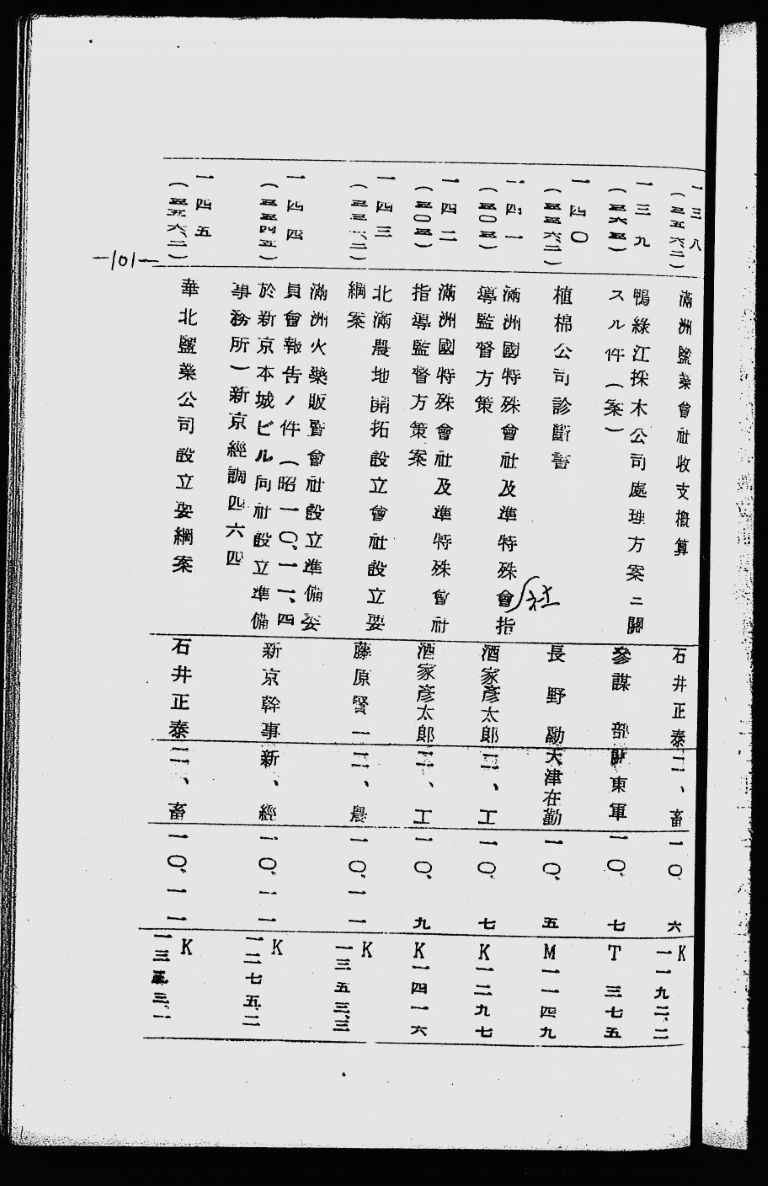 一三八
(三五六、二)
滿洲鹽業會社收支槪算
石井正泰
二、畜
一〇、六
K
一一九二、二
一三九
(三六五)
鴨綠江採木公司處理方案ニ關
スル件(案)
參謀部
關東軍
一〇、七
T三七五
一四〇
(三五六、二)
植棉公司診斷書
長野勛
天津在勤
一〇、五
M一一四九
一四一
(三〇三)
滿洲國特殊會社及準特殊會指
社
導監督方策
酒家彥太郎
二、工
一〇、七
K一二九七
一四二
(三〇三)
滿洲國特殊會社及準特殊會社
指導監督方策案
酒家彥太郎
二、工
一〇、九
K一四一六
一四三
北滿農地開拓設立會社設立要
綱案
藤原賢一
二、農
一〇、一一
K
一三五三、三
一四四
滿洲火藥販賣會社設立準備委
員會報告ノ件(昭一〇、一一、四
於新京本城ビル同社設立準備
事務所)新京經調四六四
新京幹事
新、經
一〇、一一
K
一二七五、二
一四五
(三五六、二)
華北鹽業公司設立要綱案
石井正泰
二、畜
一〇、一一
K
一三五三、一
—101—